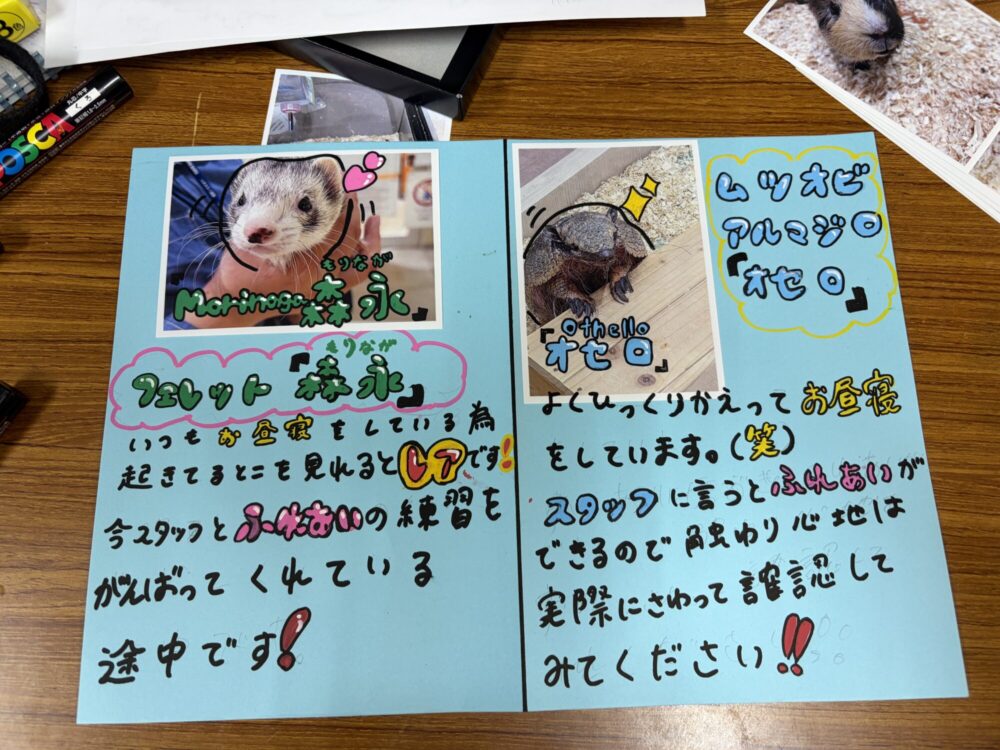 POSCA
くろ
もりなが
Morinaga 森永
もりなが
フェレット「森永」
いつもお昼寝をしている為
起きてるとこを見れるとレアです!
今スタッフとふれあいの練習を
がんばってくれている
途中です!
ムツオビ
アルマジロ
「オセロ」
Othello
「オセロ」
よくひっくりかえってお昼寝
をしています。(笑)
スタッフに言うとふれあいが
できるので触わり心地は
実際にさわって確認して
みてください!!